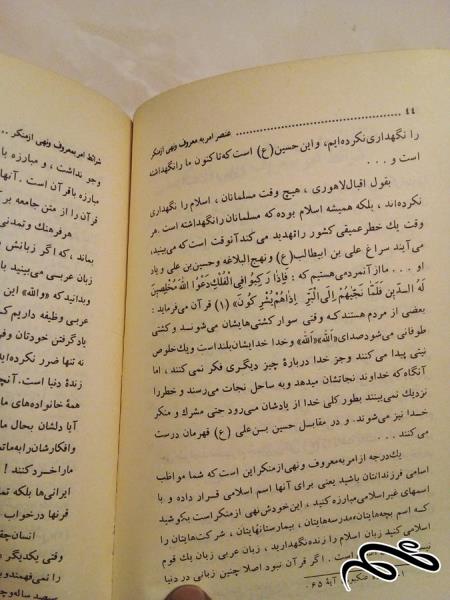 ۴۴ ........ عنصر امر به معروف ونهی ازمنکر
را نگهداری نکرده‌ایم، واین حسین (ع) است که تا کنون ما را نگهداشته
است و . . .
بقول اقبال لاهوری ، هیچ وقت مسلمانان ، اسلام را نگهداری
نکرده‌اند ، بلکه همیشه اسلام بوده که مسلمانان را نگهداشته است . هر
وقت یک خطر عمیقی کشور را تهدید می کند آنوقت است که می‌بینید،
می آیند سراغ علی بن ابیطالب (ع) و نهج البلاغه وحسین بن علی و یاد
او . . . ما از آنمردمی هستیم که : فَاِذا رَکِبُوا فِی الْفُلْكِ دَعَوُا اللهَ مُخْلِصِینَ
لَهُ الدّینَ فَلَمّا نَجّیٰهُمْ اِلَی الْبَرِّ اِذاهُمْ یُشْرِکُونَ» (۱) قرآن می‌فرماید :
بعضی از مردم هستند که وقتی سوار کشتی‌هایشان می‌شوند و کشتی
طوفانی می‌شود صدای «الله» «الله» وخدا خدایشان بلند است ویك خلوص
نیتی پیدا می کنند وجز خدا درباره چیز دیگری فکر نمی‌کنند ، اما
آنگاه که خداوند نجاتشان میدهد وبه ساحل نجات می‌رسند و خطر را
نزدیک نمی‌بینند بطور کلی خدا از یادشان می‌رود حتی مشرک و منکر
خدا نیز می‌شوند. و در مقابل حسین بن‌علی (ع) قهرمان درست
می کنند . . .
یك‌درجه از امر به‌معروف ونهی ازمنکر این است که شما مواظب
اسامی فرزندانتان باشید یعنی برای آنها اسم اسلامی قرار داده و با
اسمهای غیر اسلامی مبارزه کنید ، این‌خودش نهی ازمنکر است بکوشید
که اسم بچه‌هایتان، مدرسه‌هایتان ، بیمارستانهایتان ، شرکت‌هایتان را
اسلامی کنید زبان اسلام را زنده نگهدارید ، زبان عربی زبان یك قوم
است . اگر قرآن نبود اصلا چنین زبانی در دنیا
عنکبوت آیهٔ ۶۵ .
شرائط امر به معروف ونهی ازمنکر ...
وجو نداشت ، و مبارزه با
مبارزه باقرآن است . آنها
قرآن را از متن جامعه بر
هر فرهنگ و تمدنی
بماند ، که اگر زبانش
زبان عربی می‌بینید با
وبدانید که «والله» این
عربی وظیفه داریم که
یادگرفتن خودتان وفر
نه تنها ضرر نکرده‌اید
زندهٔ دنیا است. آنچه
همهٔ خانواده‌های ما
آیا دلشان بحال ما
وافکارشان را به ماتم
مارا خرد کنند !
ایرانی‌ها بلکه تما
قرنها در خواب
انسان چقد
وقتی یکدیگر
را نمی‌فهمند و
سیصد ساله و چ